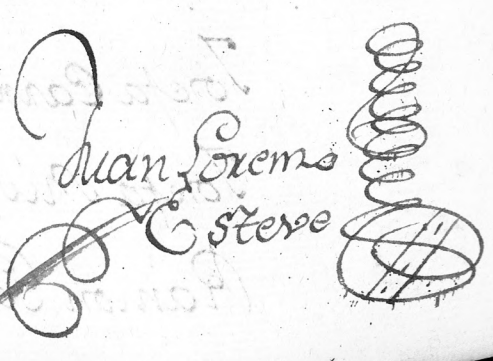 Juan Lorens
Esteve